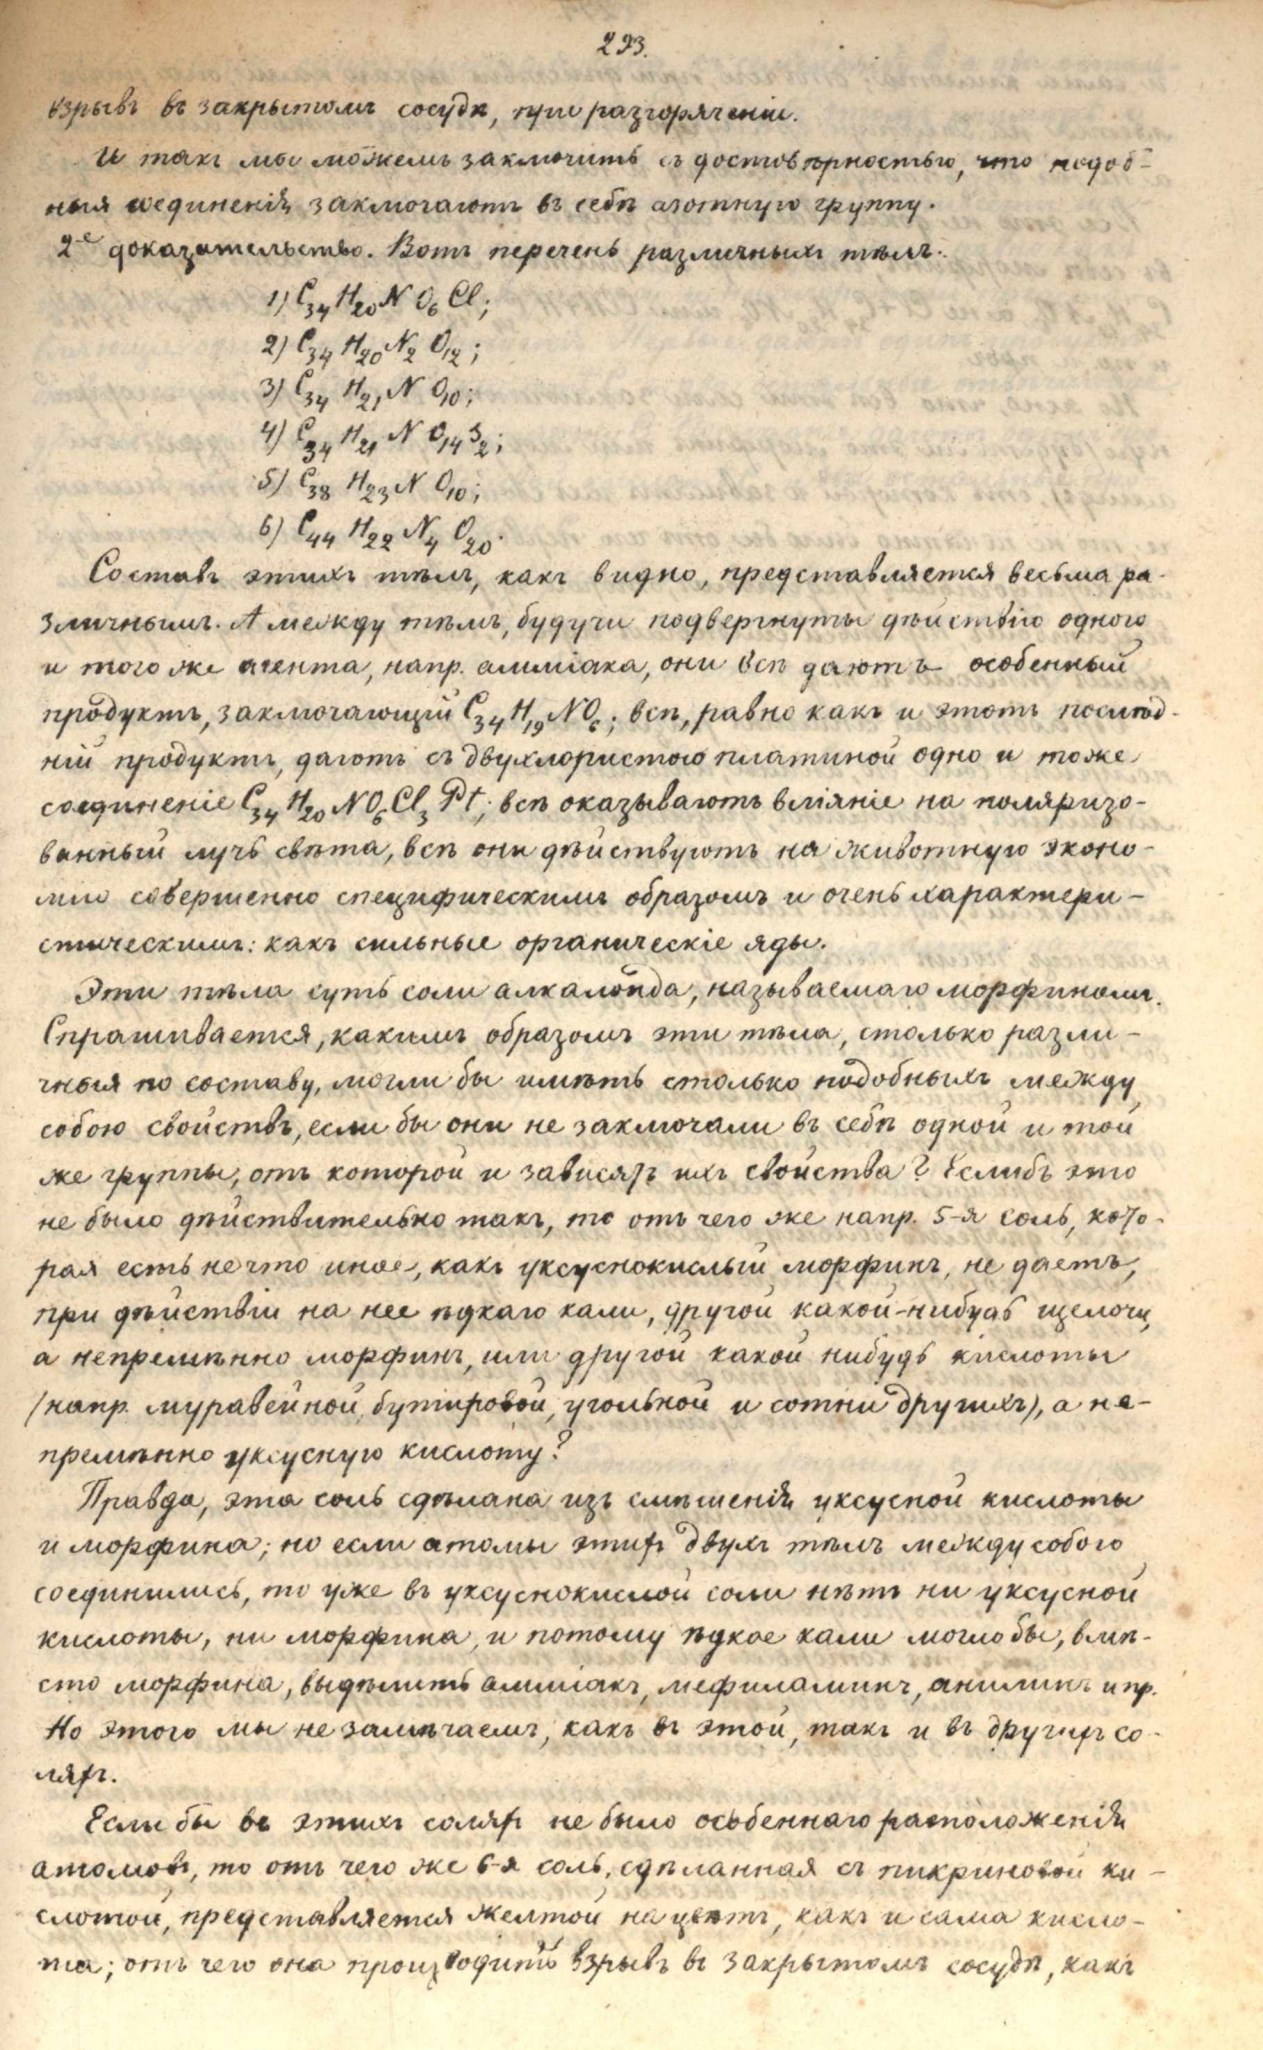 293.
взрывъ въ закрытомъ сосудѣ, при разгоряченіи.
И такъ мы можемъ заключить съ достовѣрностью, что подоб-
ныя соединенія заключаютъ въ себѣ азотную группу.
2-е доказательство. Вотъ перечень различныхъ тѣлъ:
1) C₃₄ H₂₀ N O₆ Cl;
2) C₃₄ H₂₀ N₂ O₁₂;
3) C₃₄ H₂₁ N O₁₀;
4) C₃₄ H₂₁ N O₁₄ S₂;
5) C₃₈ H₂₃ N O₁₀;
6) C₄₄ H₂₂ N₄ O₂₀.
Составъ этихъ тѣлъ, какъ видно, представляется весьма ра-
зличнымъ. А между тѣмъ, будучи подвергнуты дѣйствію одного
и того же агента, напр. амміака, они всѣ даютъ особенный
продуктъ, заключающій C₃₄ H₁₉ NO₆; всѣ, равно какъ и этотъ послѣд-
ній продуктъ, даютъ съ двухлористою платиной одно и тоже
соединеніе C₃₄ H₂₀ NO₆ Cl₃ Pt; всѣ оказываютъ вліяніе на поляризо-
ванный лучъ свѣта, всѣ они дѣйствуютъ на животную эконо-
мію совершенно специфическимъ образомъ и очень характери-
стическимъ: какъ сильные органическіе яды.
Эти тѣла суть соли алкалоида, называемаго морфиномъ.
Спрашивается, какимъ образомъ эти тѣла, столько разли-
чныя по составу, могли бы имѣть столько подобныхъ между
собою свойствъ, если бы они не заключали въ себѣ одной и той
же группы, отъ которой и зависятъ ихъ свойства? Еслибъ это
не было дѣйствительно такъ, то отъ чего же напр. 5-я соль, кото-
рая есть не что иное, какъ уксуснокислый морфинъ, не даетъ,
при дѣйствіи на нее ѣдкаго кали, другой какой-нибудь щелочи,
а непремѣнно морфинъ, или другой какой нибудь кислоты
(напр. муравейной, бутировой, угольной и сотни другихъ), а не-
премѣнно уксусную кислоту?
Правда, эта соль сдѣлана изъ смѣшенія уксусной кислоты
и морфина; но если атомы этихъ двухъ тѣлъ между собою
соединились, то уже въ уксуснокислой соли нѣтъ ни уксусной
кислоты, ни морфина, и потому ѣдкое кали могло бы, вмѣ-
сто морфина, выдѣлить амміакъ, мефиламинъ, анилинъ и пр.
Но этого мы не замѣчаемъ, какъ въ этой, такъ и въ другихъ со-
ляхъ.
Если бы въ этихъ соляхъ не было особеннаго расположенія
атомовъ, то отъ чего же 6-я соль, сдѣланная съ пикриновой ки-
слотой, представляется желтой на цвѣтъ, какъ и сама кисло-
та; отъ чего она производитъ взрывъ въ закрытомъ сосудѣ, какъ